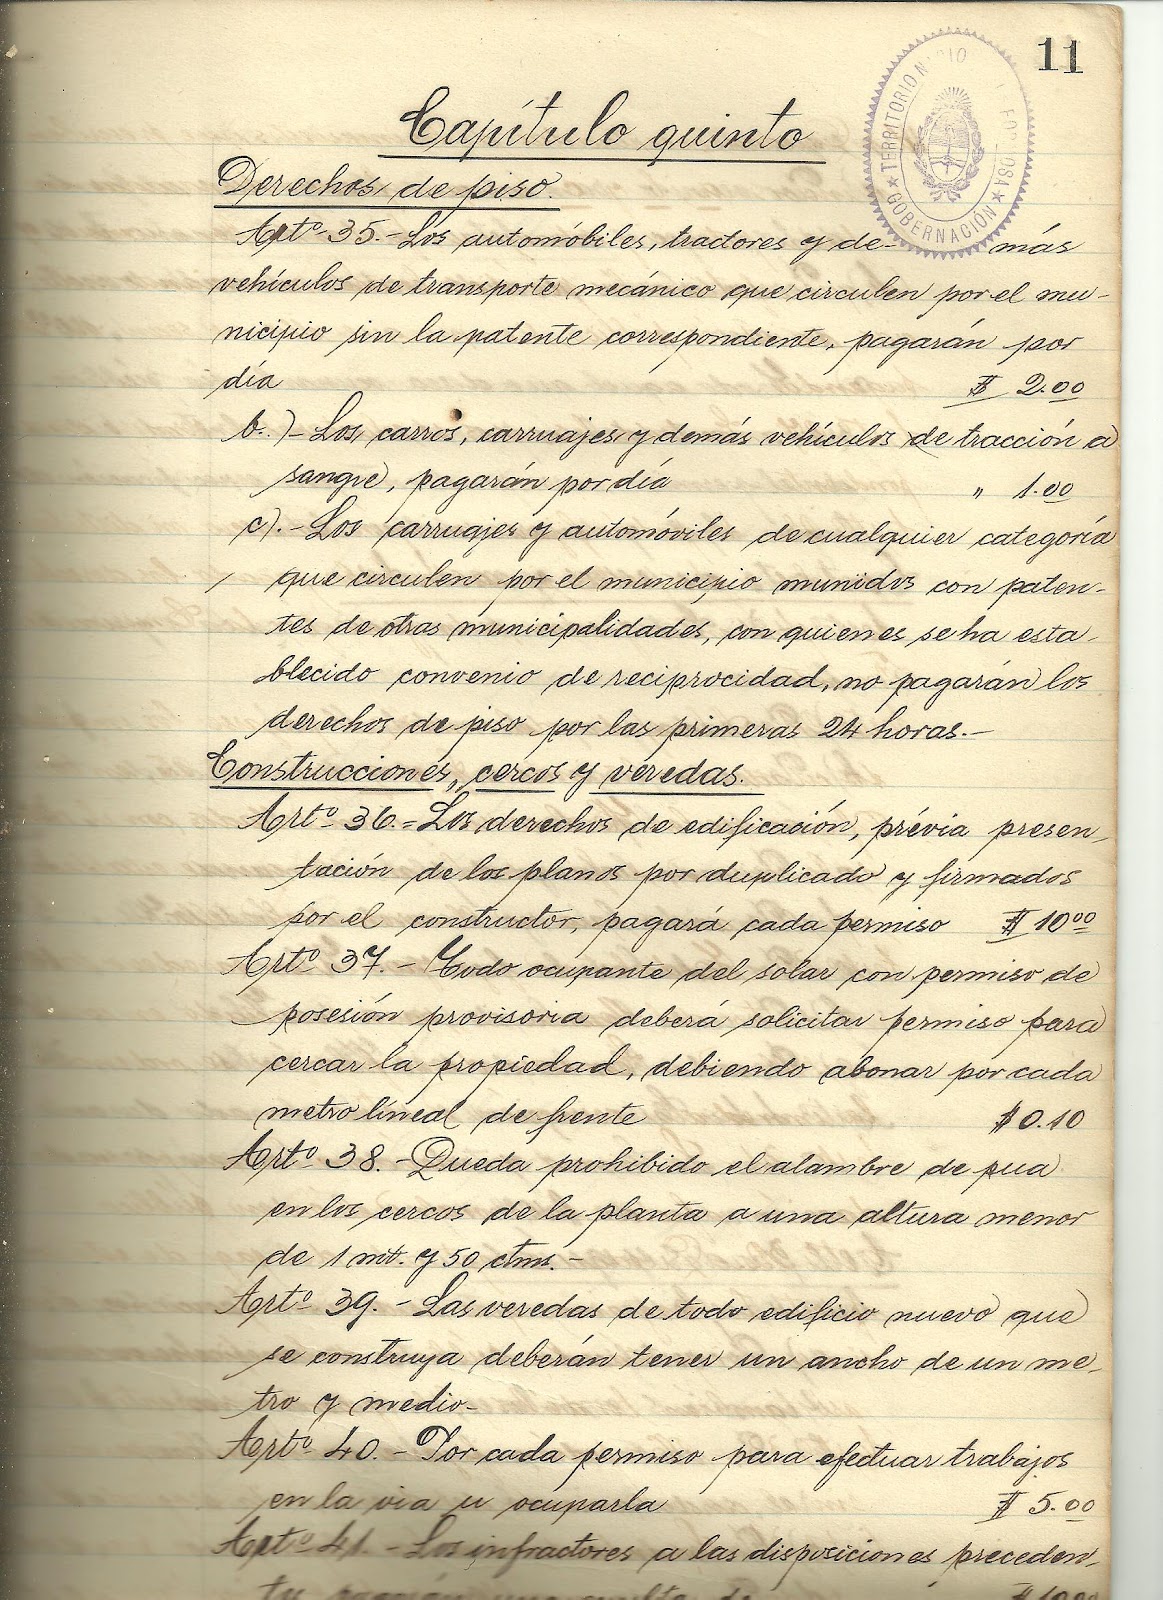 11
TERRITORIO N
GOBERNACIÓN
Capítulo quinto
Derechos de piso.
Artº 35.- Los automóbiles, tractores y de- más
vehículos de transporte mecánico que circulen por el mu-
nicipio sin la patente correspondiente, pagarán por
día $ 2.00
b.)- Los, carros, carruajes, y demás vehículos de tracción a
sangre, pagarán por día " 1.00
c).- Los carruajes y automóviles de cualquier categoría
que circulen por el municipio munidos con paten-
tes de otras municipalidades, con quienes se ha esta-
blecido convenio de reciprocidad, no pagarán los
derechos de piso por las primeras 24 horas.-
Construcciones, cercos y veredas.
Artº 36.= Los derechos de edificación, prévia presen-
tación de los planos por duplicado y firmados
por el constructor, pagará cada permiso $ 10 00
Artº 37.- Todo ocupante del solar con permiso de
posesión provisoria deberá solicitar permiso para
cercar la propiedad, debiendo abonar por cada
metro lineal de frente $ 0.10
Artº 38.- Queda prohibido el alambre de pua
en los cercos de la planta a una altura menor
de 1 mt. y 50 ctms.-
Artº 39.- Las veredas de todo edificio nuevo que
se construya deberán tener un ancho de un me-
tro y medio-
Artº 40.- Por cada permiso para efectuar trabajos
en la via u ocuparla $ 5.00
Artº 41.- Los infractores a las disposiciones preceden-